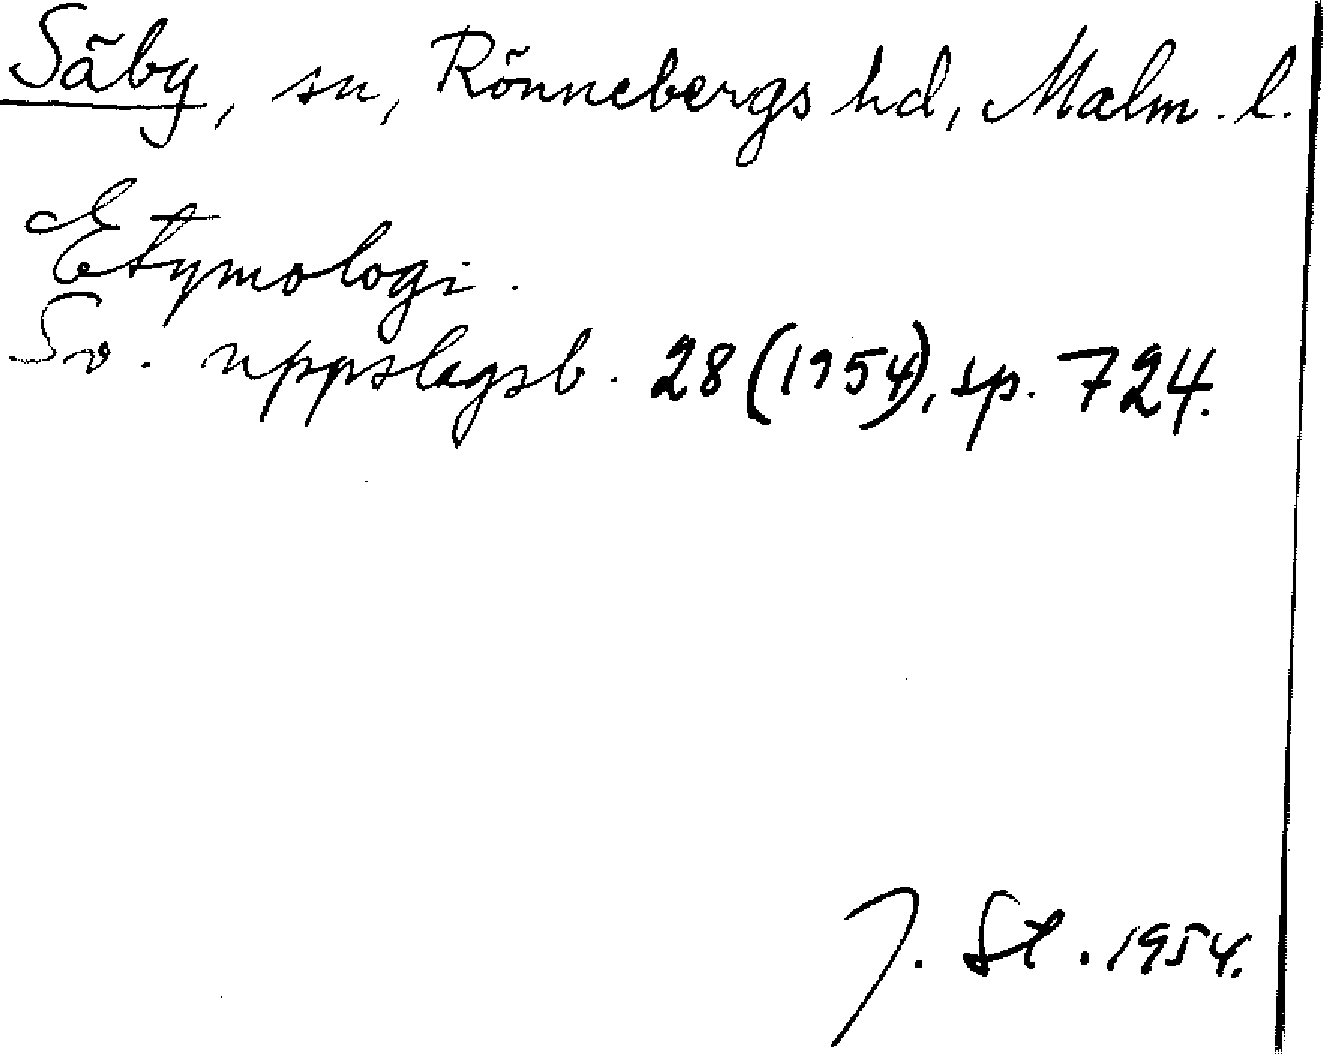 Säby, sn, Rönnebergs hd, Malm. l.
Etymologi.
Sv. uppslagsb. 28 (1954), sp. 724.
J. St. 1954.